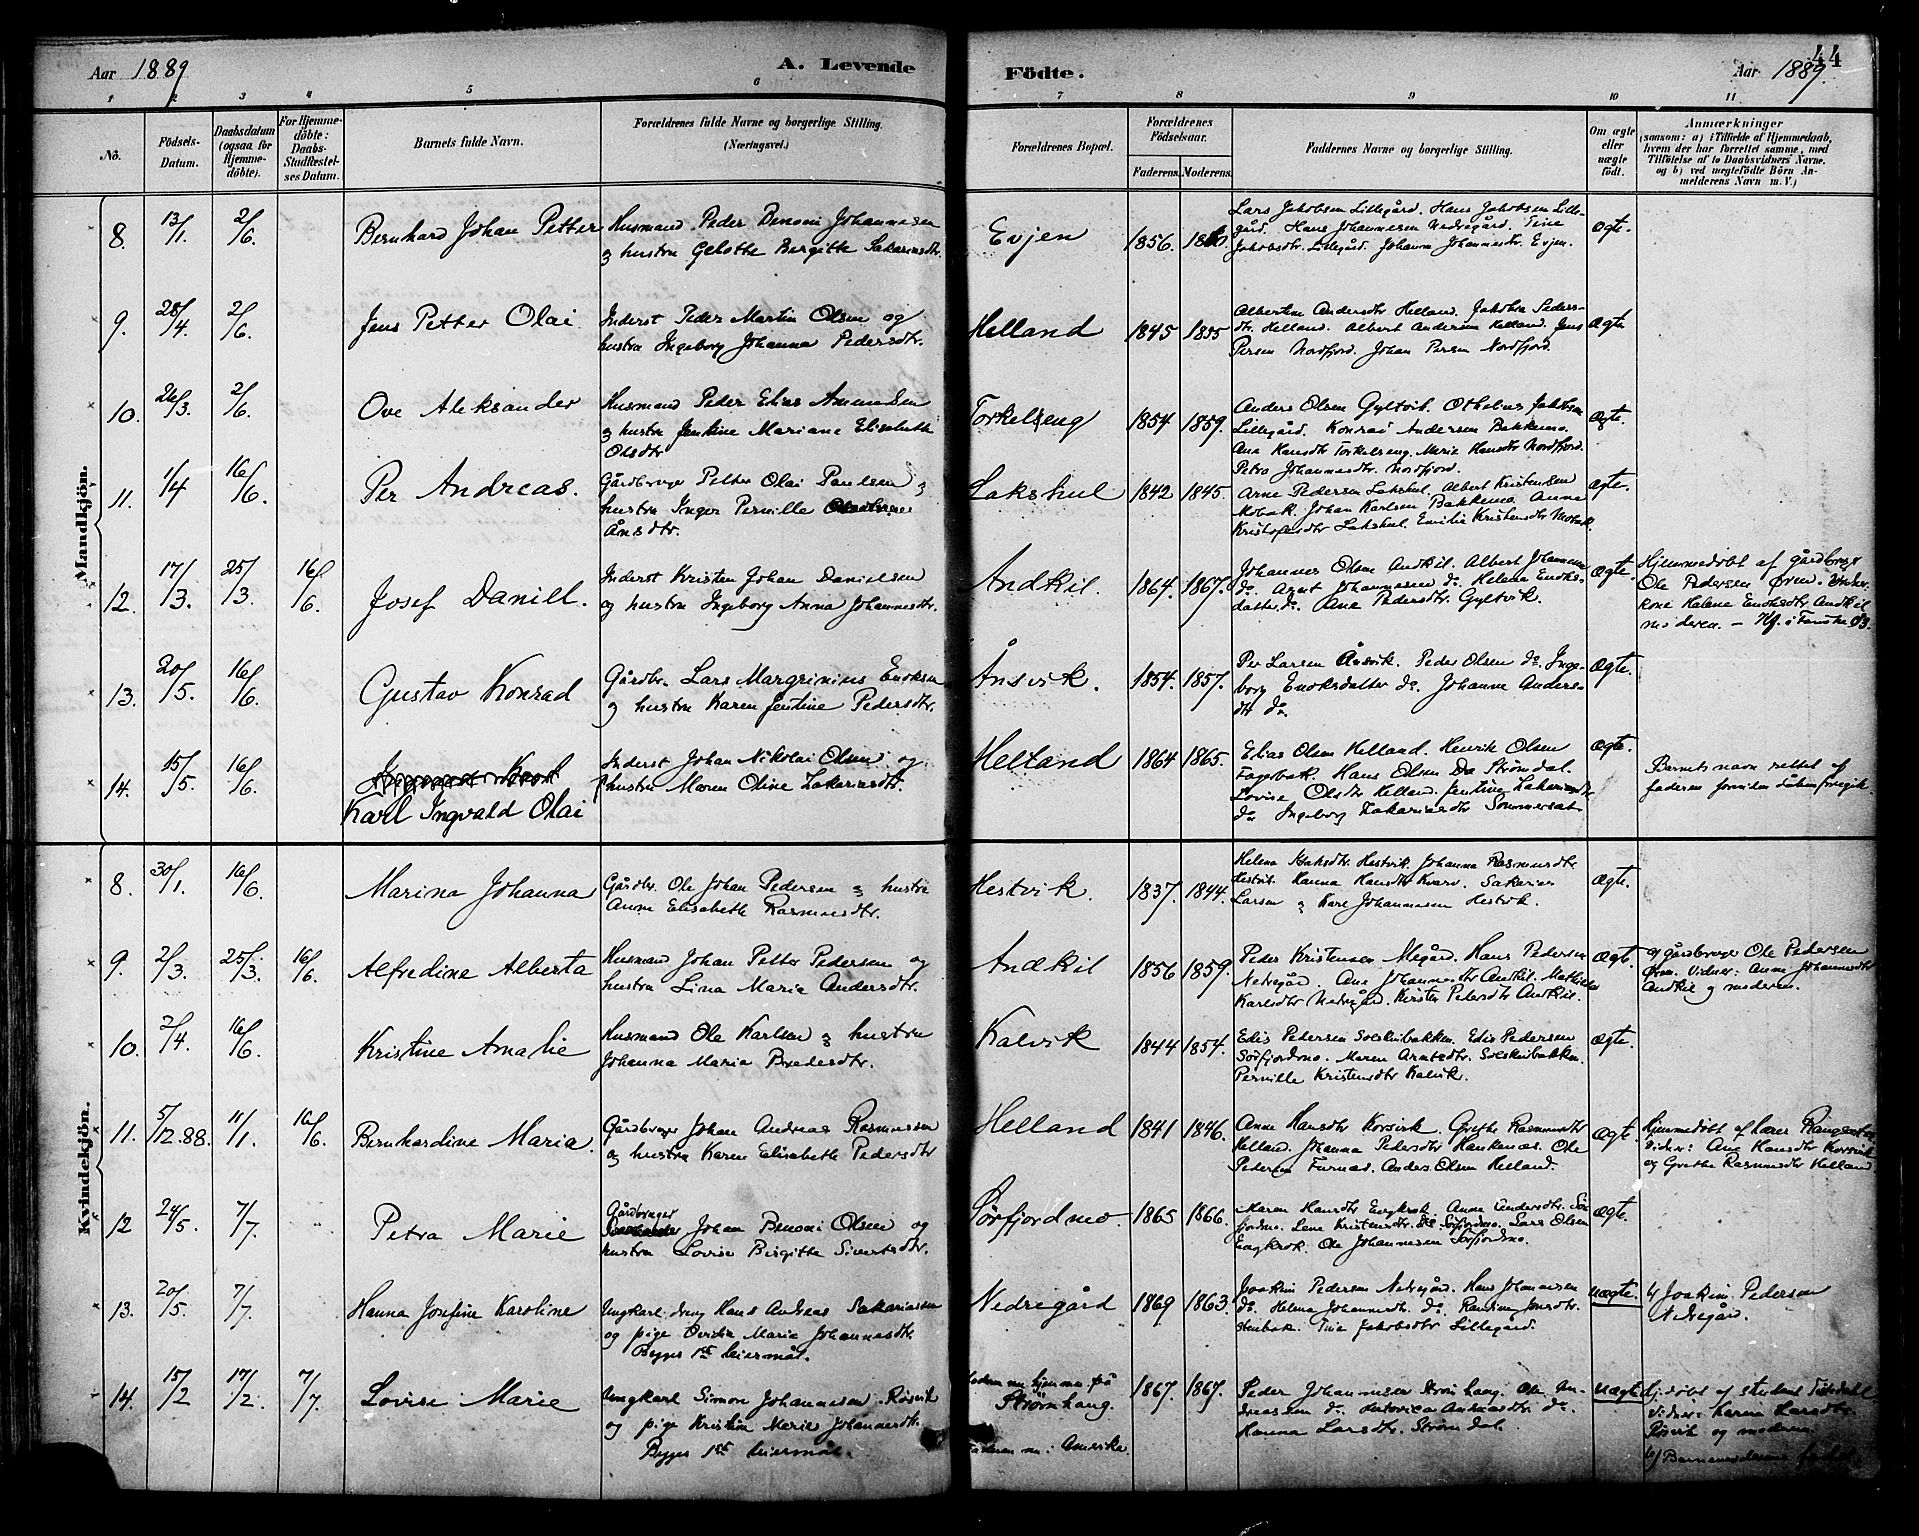 Aar 1889
A. Levende
Födte.
Aar 1889.
44
1 2 3 4 5 6 7 8 9 10 11
No.
Födsels-Datum.
Daabsdatum (ogsaa for Hjemme-döbte).
For Hjemme-döbte: Daabs-Stadfestel-ses Datum.
Barnets fulde Navn.
Forældrenes fulde Navne og borgerlige Stilling.
(Næringsvei.)
Forældrenes Bopæl.
Forældrenes Födselsaar.
Faderens. Moderens.
Faddernes Navne og borgerlige Stilling.
Om ægte eller uægte födt.
Anmærkninger
(saasom: a) i Tilfælde af Hjemmedaab,
hvem der har forrettet samme, med
Tilföielse af to Daabsvidners Navne.
og b) ved uægtefödte Börn An-
melderens Navn m. V.)
Mandkjön.
8. 13/1. 2/6. Bernhard Johan Petter
Husmand Peder Benoni Johannesen
og hustru Birgitte Sakariasdtr.
Evjen 1856. 1860.
Lars Jakobsen Lillegård. Hans Jakobsen Lille-
gård. Hans Johannesen Nedregård. Tine
Jakobsdtr. Lillegård. Johanna Johannesdtr. Evjen.
Ægte.
9. 28/4. 2/6. Jens Petter Olai
Inderst Peder Martin Olsen og
hustru Ingeborg Johanna Pedersdtr.
Helland 1845 1855
Albertine Andersdtr Helland. Jakobine Peders-
dtr. Helland. Albert Andersen Helland. Jens
Persen Nordfjord. Johan Persen Nordfjord.
Ægte
10. 26/3. 2/6. Ove Aleksander
Husmand Peder Elias Amundsen
og hustru Jentine Mariane Elisabeth
Olsdtr
Torkelseng 1854. 1859.
Anders Olsen Gyltvik. Othelius Jakobsen
Lillegård. Konrad Andersen Bakkemo.
Ane Hansdtr Torkelseng. Marie Hansdtr Nordfjord.
Petra Johannesdtr. Nordfjord.
Ægte.
11. 1/4 16/6. Per Andreas.
Gårdbruger Petter Olai Paulsen og
hustru Inger Pernille
Arnsdtr.
Lakshul 1842 1845.
Arne Pedersen Lakshul. Albert Kristensen
Mobak. Johan Karlsen Bakkemo. Anne
Kristofersdtr Lakshul. Emilie Kristensdtr Mobak.
Ægte.
12. 17/3. 25/3. 16/6. Josef Daniel.
Inderst Kristen Johan Danielsen
og hustru Ingeborg Anna Johannesdtr.
Andkil. 1864. 1867.
Johannes Olsen Andkil. Albert Johannesen
do. Arnt Johannesen do. Helena Enoks-
datter do. Ane Pedersdtr. Gyltvik.
Ægte.
Hjemmedöbt af gårdbruger
Ole Pedersen Ørem. Vidner:
kone Helene Enoksdtr Andkil
moderen.
13. 20/5. 16/6. Gustav Konrad
Gårdbr. Lars Margrinius Enoksen
og hustru Karen Jentine Pedersdtr.
Ånsvik. 1854. 1857.
Per Larsen Ånsvik. Peder Olsen do. Inge-
borg Enoksdatter do. Johanne Anders-
dtr do.
Ægte.
14. 15/5. 16/6.
Karl Ingvald Olai
Inderst Johan Nikolai Olsen og
hustru Maren Oline Zakariasdtr.
Helland 1864 1865.
Elias Olsen Helland. Henrik Olsen
Fagerbak. Hans Olsen Da Strömdal.
Lovise Olsdtr Helland. Jentine Zakariasdtr
do. Ingeborg Zakariasdtr Sommerset
Ægte.
Barnets navn rettet af
faderen
Kvindekjön.
8. 30/1. 16/6. Marina Johanna
Gårdbr. Ole Johan Pedersen og hustru
Anne Elisabeth Rasmusdtr.
Hestvik. 1837. 1844.
Helena Isaksdtr. Hestvik. Johanna Rasmusdtr.
Hestvik. Hanna Hansdtr Kvarv. Sakarias
Larsen og Karl Johannesen Hestvik.
Ægte.
9. 2/3. 25/3. 16/6. Alfredine Alberta
Husmand Johan Petter Pedersen og
hustru Lina Maria Andersdtr.
Andkil 1856 1859.
Peder Kristensen Megård. Hans Pedersen
Nedregård. Ane Johannesdtr Andkil. Mathilde
Karlsdtr Nedregård. Kirsten Pedersdtr Andkil.
Ægte.
af gårdbruger Ole Pedersen
Ørem. Vidner: Anne Johannesdtr
Andkil og moderen.
10. 2/4. 16/6. Kristine Amalie
Husmand Ole Karlsen og hustru
Johanna Maria Pedersdtr.
Kalvik 1844 1854.
Edis Pedersen Solskinbakken. Edis Pedersen
Sörfjordmo. Maren Arntsdtr. Solskinbakken.
Pernille Kristensdtr Kalvik.
Ægte.
11. 5/12.88. 11/1. 16/6. Bernhardine Maria.
Gårdbruger Johan Andreas Rasmussen
og hustru Karen Elisabeth Pedersdtr
Helland 1841 1846.
Anne Hansdtr Korsvik. Grethe Rasmusdtr
Helland. Johanna Pedersdtr Haukenæs. Ole
Pedersen Furnæs. Anders Olsen Helland.
Ægte.
Hjemmedöbt af lærer
Vidner: Ane Hansdtr Korsvik
og Grethe Rasmusdtr Helland
12 24/5. 7/7. Petra Marie
Gårdbruger
Johan Benoni Olsen og
hustru Lovise Birgitte Sivertsdtr.
Sörfjordmo. 1865 1866.
Maren Hansdtr Engkrok. Anne Andersdtr. Sör-
fjordmo. Lene Kristensdtr. do Sörfjordmo. Lars Olsen
Engkrok. Ole Johannesen Sörfjordmo.
Ægte.
13. 20/5. 7/7. Hanna Josefine Karoline
Ungkarl dreng Hans Andreas Sakariassen
og pige Ovidia Maria Johannesdtr.
Begges 1st leiermål.
Nedregård 1869 1863.
Joakim Pedersen Nedregård. Hans Johannesen
do. Helma Johannesdtr. do. Rantine Jonsdtr.
Stenbak. Tine Jakobsdtr Lillegård.
Uægte.
b/ Joakim Pedersen
Nedregård.
14. 15/2 17/2. 7/7. Lovise Marie
Ungkarl Simon Johannesen Rösvik
og pige Kristine Marie Johannesdtr.
Begges 1st leiermål.
Moderen nu hjemme på
Strömhaug.
Faderen nu i Amerika
1867. 1867.
Peder Johannesen Strömhaug. Ole An-
dreassen do. Lutovica Antonsdtr do.
Hanna Larsdtr Strömdal.
Uægte
Hj.döbt af student
Vidner: Karen Larsdtr.
Rösvik og moderen.
b/ Barnemoderens